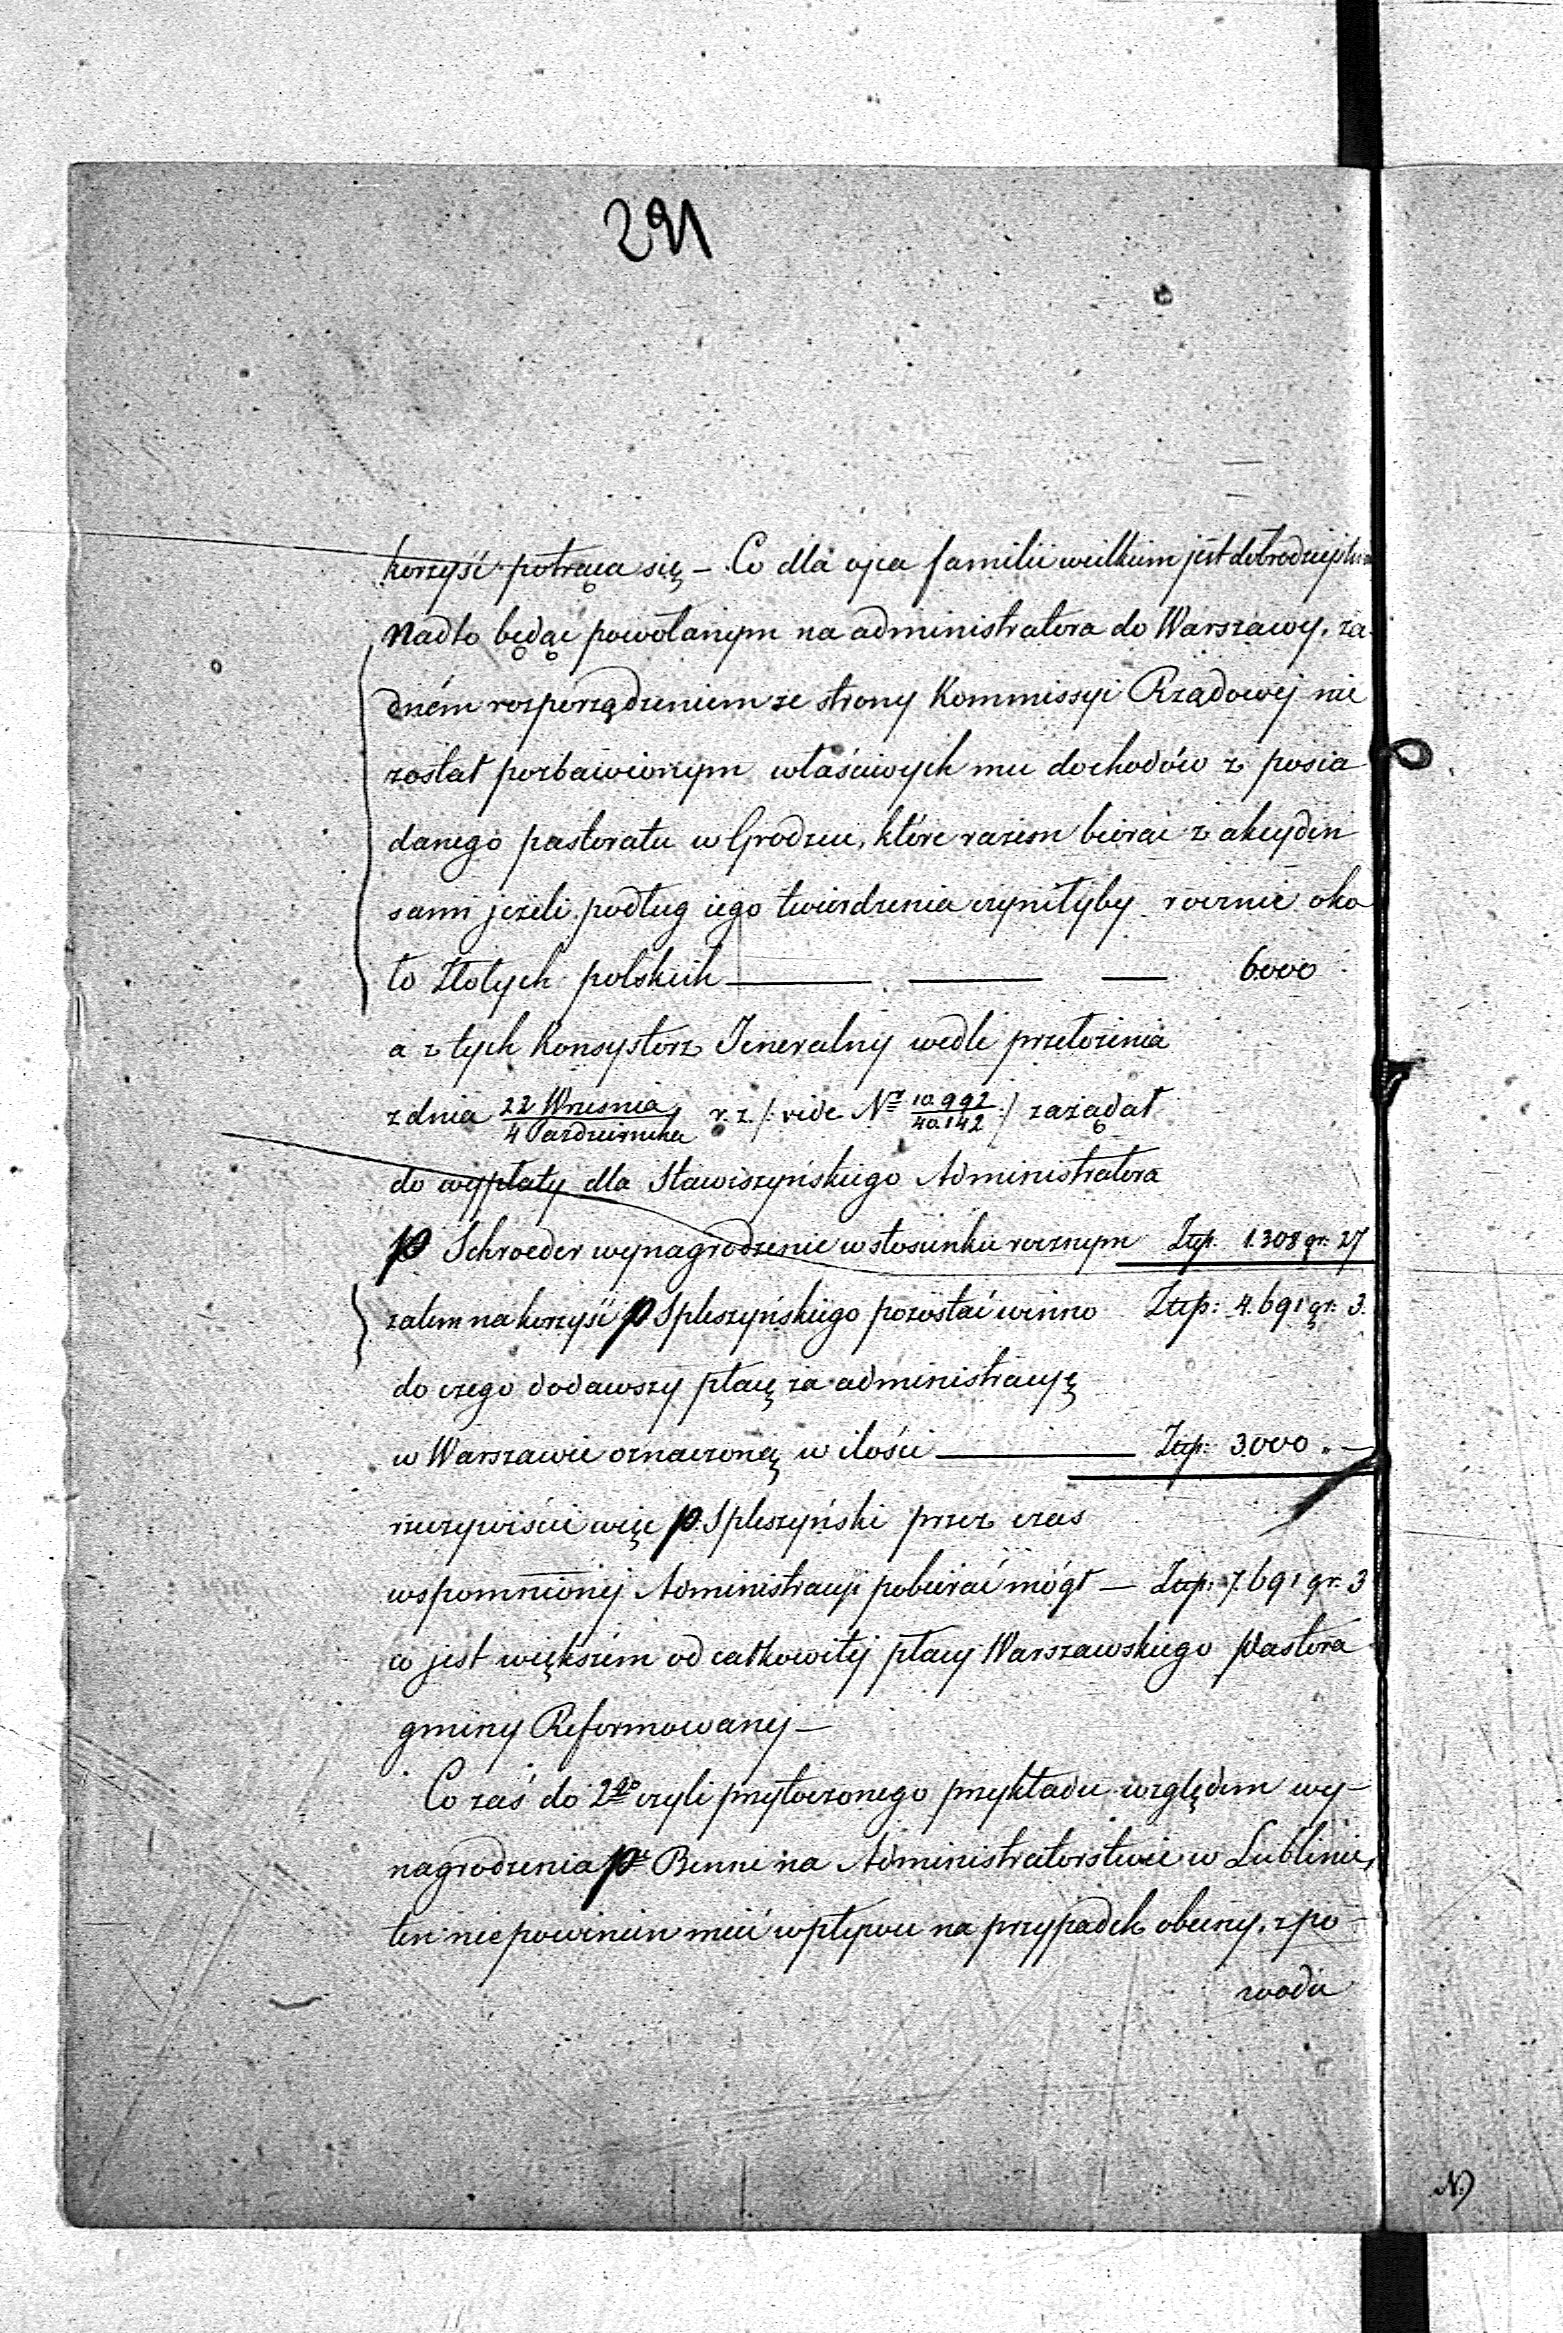 291
korzyść potrąca się — Co dla ojca familii wielkiem jest dobrodziejstwem
Nadto będąc powołanym na administratora do Warszawy, ża-
dném rozporządzeniem ze strony Kommissyi Rządowej nie
został pozbawionym właściwych mu dochodów z posia
danego pastoratu w Grodzcu, które razem biorąc z akcyden
sami jeżeli podług iego twierdzenia czyniłyby rocznie oko
ło Złotych polskich — — — 6000
a z tych Konsystorz Jeneralny wedle przełożenia
z dnia 22 Wrzesnia / 4 Października r. z. /: vide Nr 10992/40142 :/ zażądał
do wypłaty dla Stawiszyńskiego Administratora
p Schroeder wynagrodzenie w stosunku rocznym Złp. 1.308 gr. 27
zatem na korzyść p Spleszyńskiego pozostać winno Złp: 4.691 gr: 3.
do czego dodawszy płacę za administracyę
w Warszawie oznaczoną w ilości — Złp: 3000. —
rzeczywiście więc p. Spleszyński przez czas
wspomnionej Administracyi pobierać mógł — Złp: 7.691 gr. 3
co jest większém od całkowitéj płacy Warszawskiego Pastora
gminy Reformowanej —
Co zaś do 2go czyli przytoczonego przykładu względem wy-
nagrodzenia pa Benni na Administratorstwie w Lublinie,
ten nie powinien mieć wpływu na przypadek obecny, z po-
wodu
N)